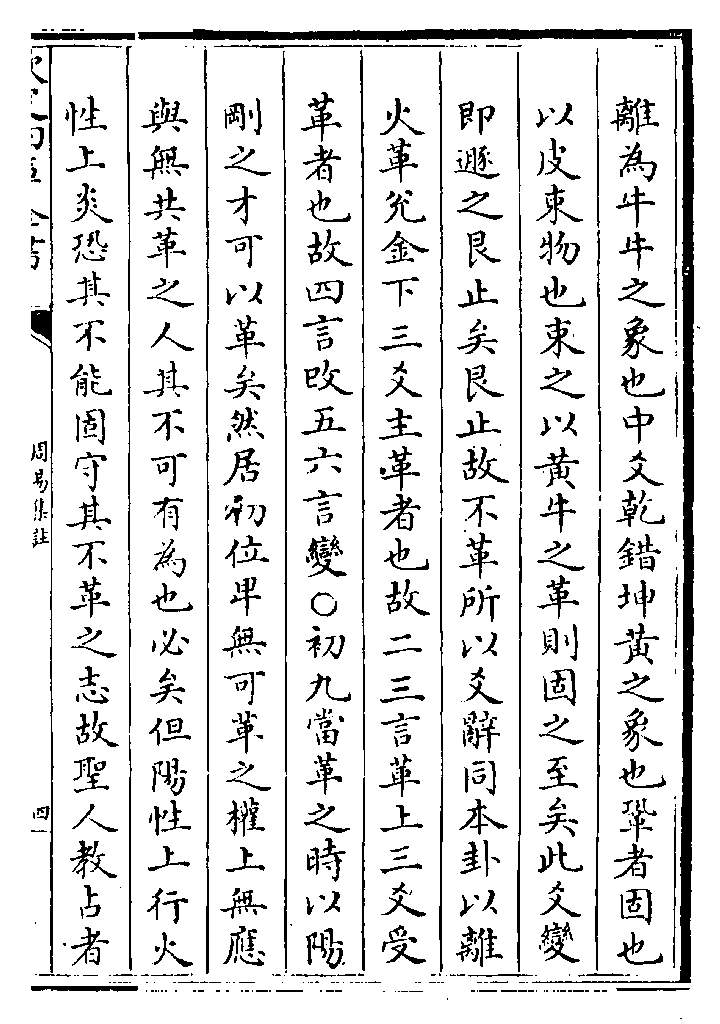 離為牛牛之象也中爻乾錯坤黃之象也鞏者固也
以皮束物也束之以黃牛之革則固之至矣此爻變
即遯之艮止矣艮止故不革所以爻辭同本卦以離
火革兊金下三爻主革者也故二三言革上三爻受
革者也故四言改五六言變〇初九當革之時以陽
剛之才可以革矣然居初位卑無可革之權上無應
與無共革之人其不可有為也必矣但陽性上行火
性上炎恐其不能固守其不革之志故聖人教占者
周易集註
四一